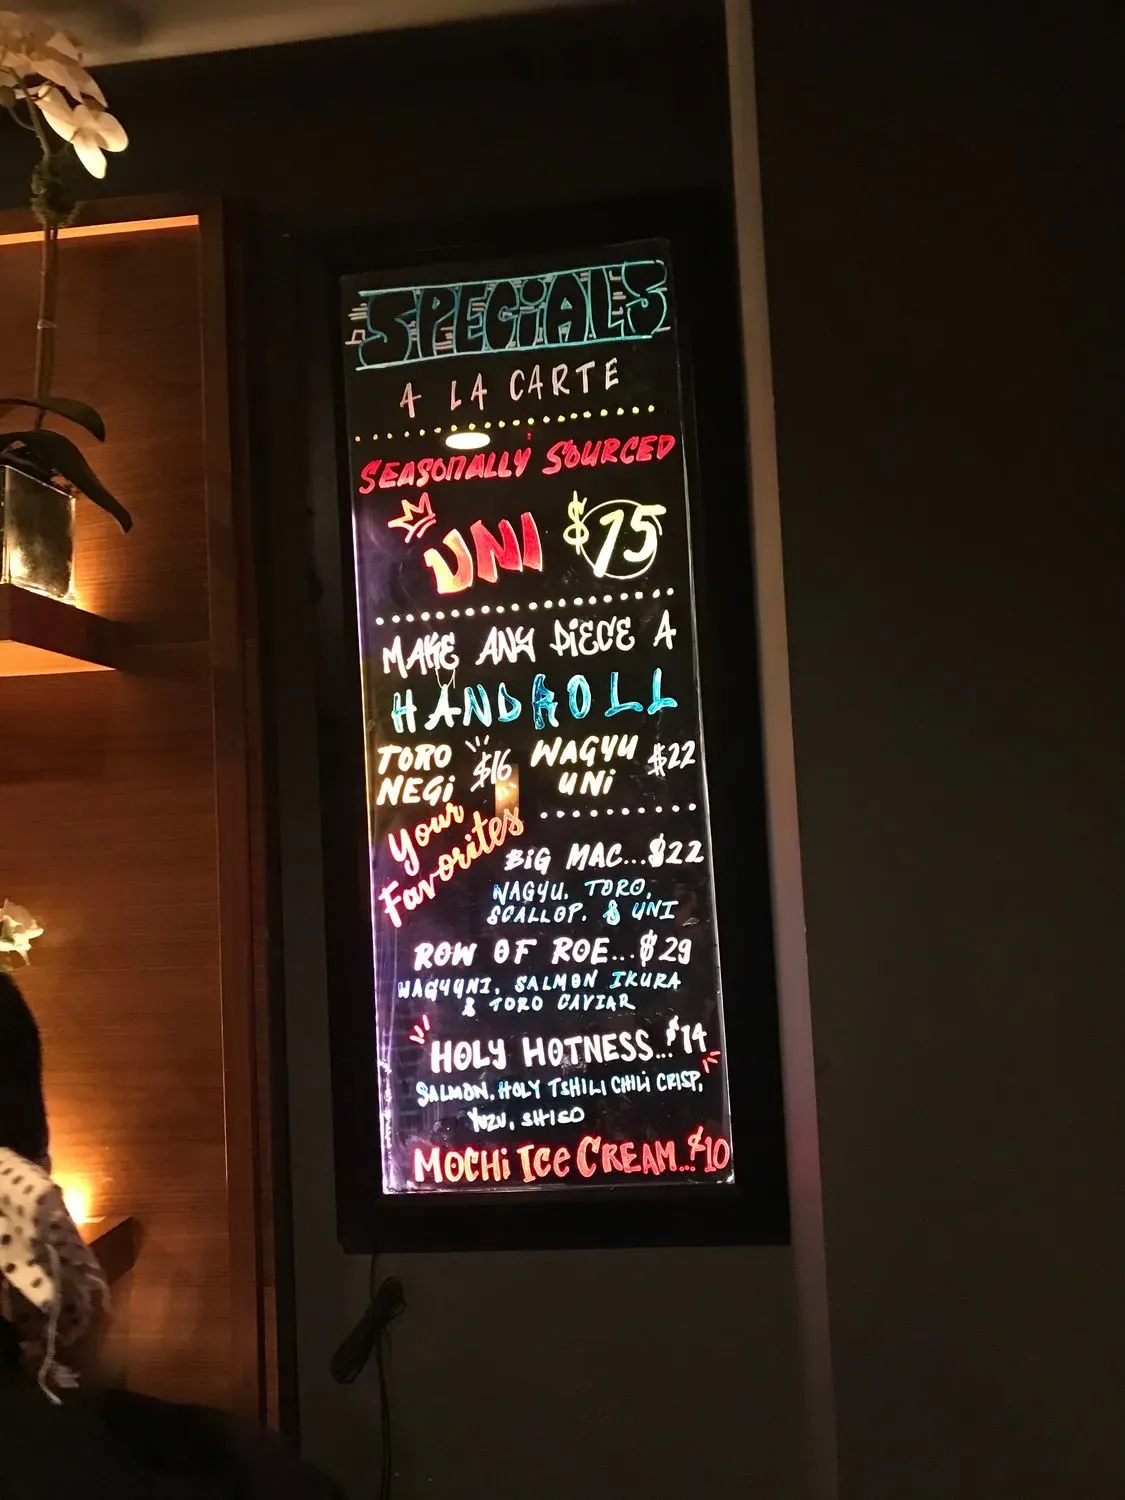 SPECIALS
A LA CARTE
SEASONALLY SOURCED
UNI $15
MAKE ANY PIECE A
HANDROLL
TORO NEGI $16 WAGYU UNI $22
Your Favorites
BIG MAC...$22
WAGYU, TORO,
SCALLOP, & UNI
ROW OF ROE...$29
WAGYUNI, SALMON IKURA
& TORO CAVIAR
HOLY HOTNESS...$14
SALMON, HOLY TSHILI CHILI CRISP,
YUZU, SHISO
MOCHI ICE CREAM...$10